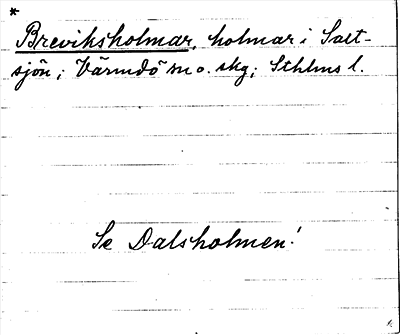 *
Breviksholmar, holmar i Salt-
sjön; Värmdö sn o. skg; Sthlms l.
Se Dalsholmen!